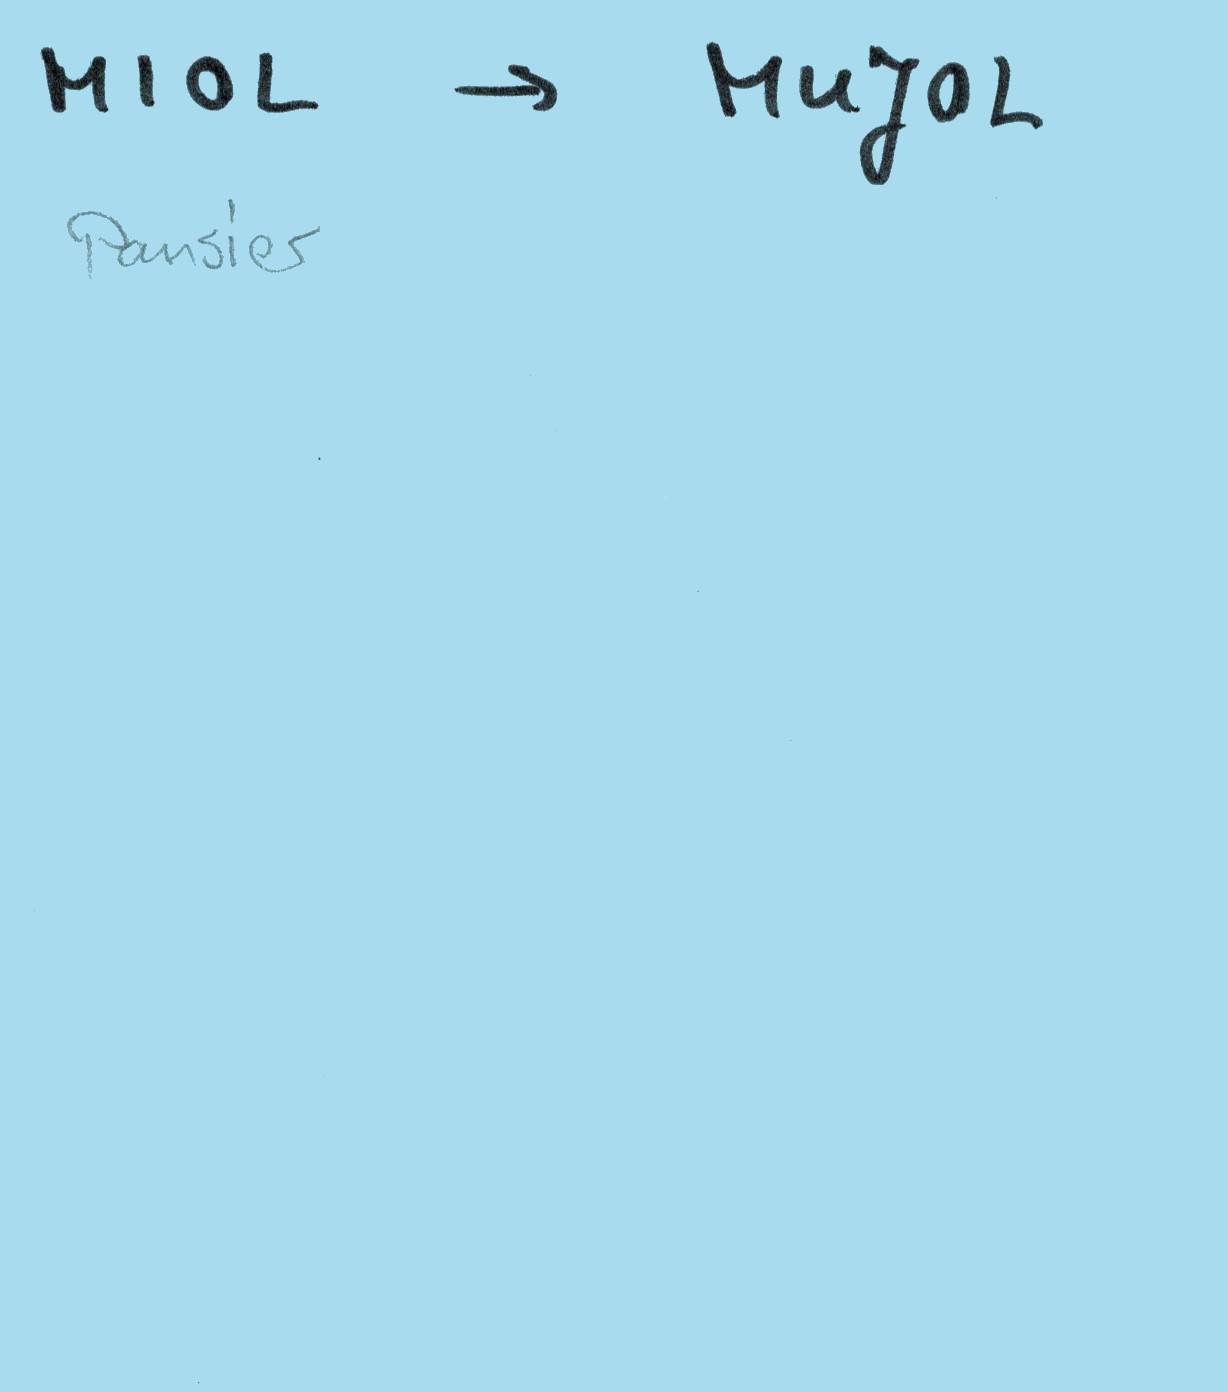 MIOL → MuJOL
Pansier